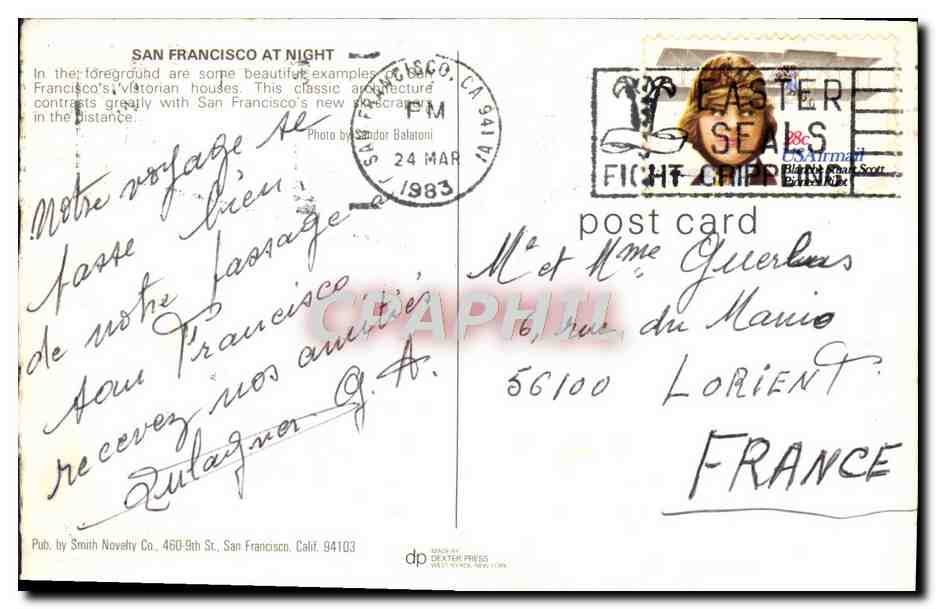 SAN FRANCISCO AT NIGHT
In the foreground are some beautiful examples of San
Francisco's Victorian houses. This classic architecture
contrasts greatly with San Francisco's new skyscrapers
in the distance.
Photo by Sandor Balatoni
Notre voyage se
passe bien
de notre passage a
San Francisco
recevez nos amitiés
G. A.
Pub. by Smith Novelty Co., 460-9th St., San Francisco, Calif. 94103
SAN FRANCISCO, CA 941
PM
24 MAR
1983
EASTER
SEALS
FIGHT CRIPPLING
28c
USAirmail
Blanche Stuart Scott
Pioneer Pilot
post card
Mr et Mme
6, rue du
56100 LORIENT
FRANCE
CPAPHIL
dp MADE BY
DEXTER PRESS
WEST NYACK, NEW YORK